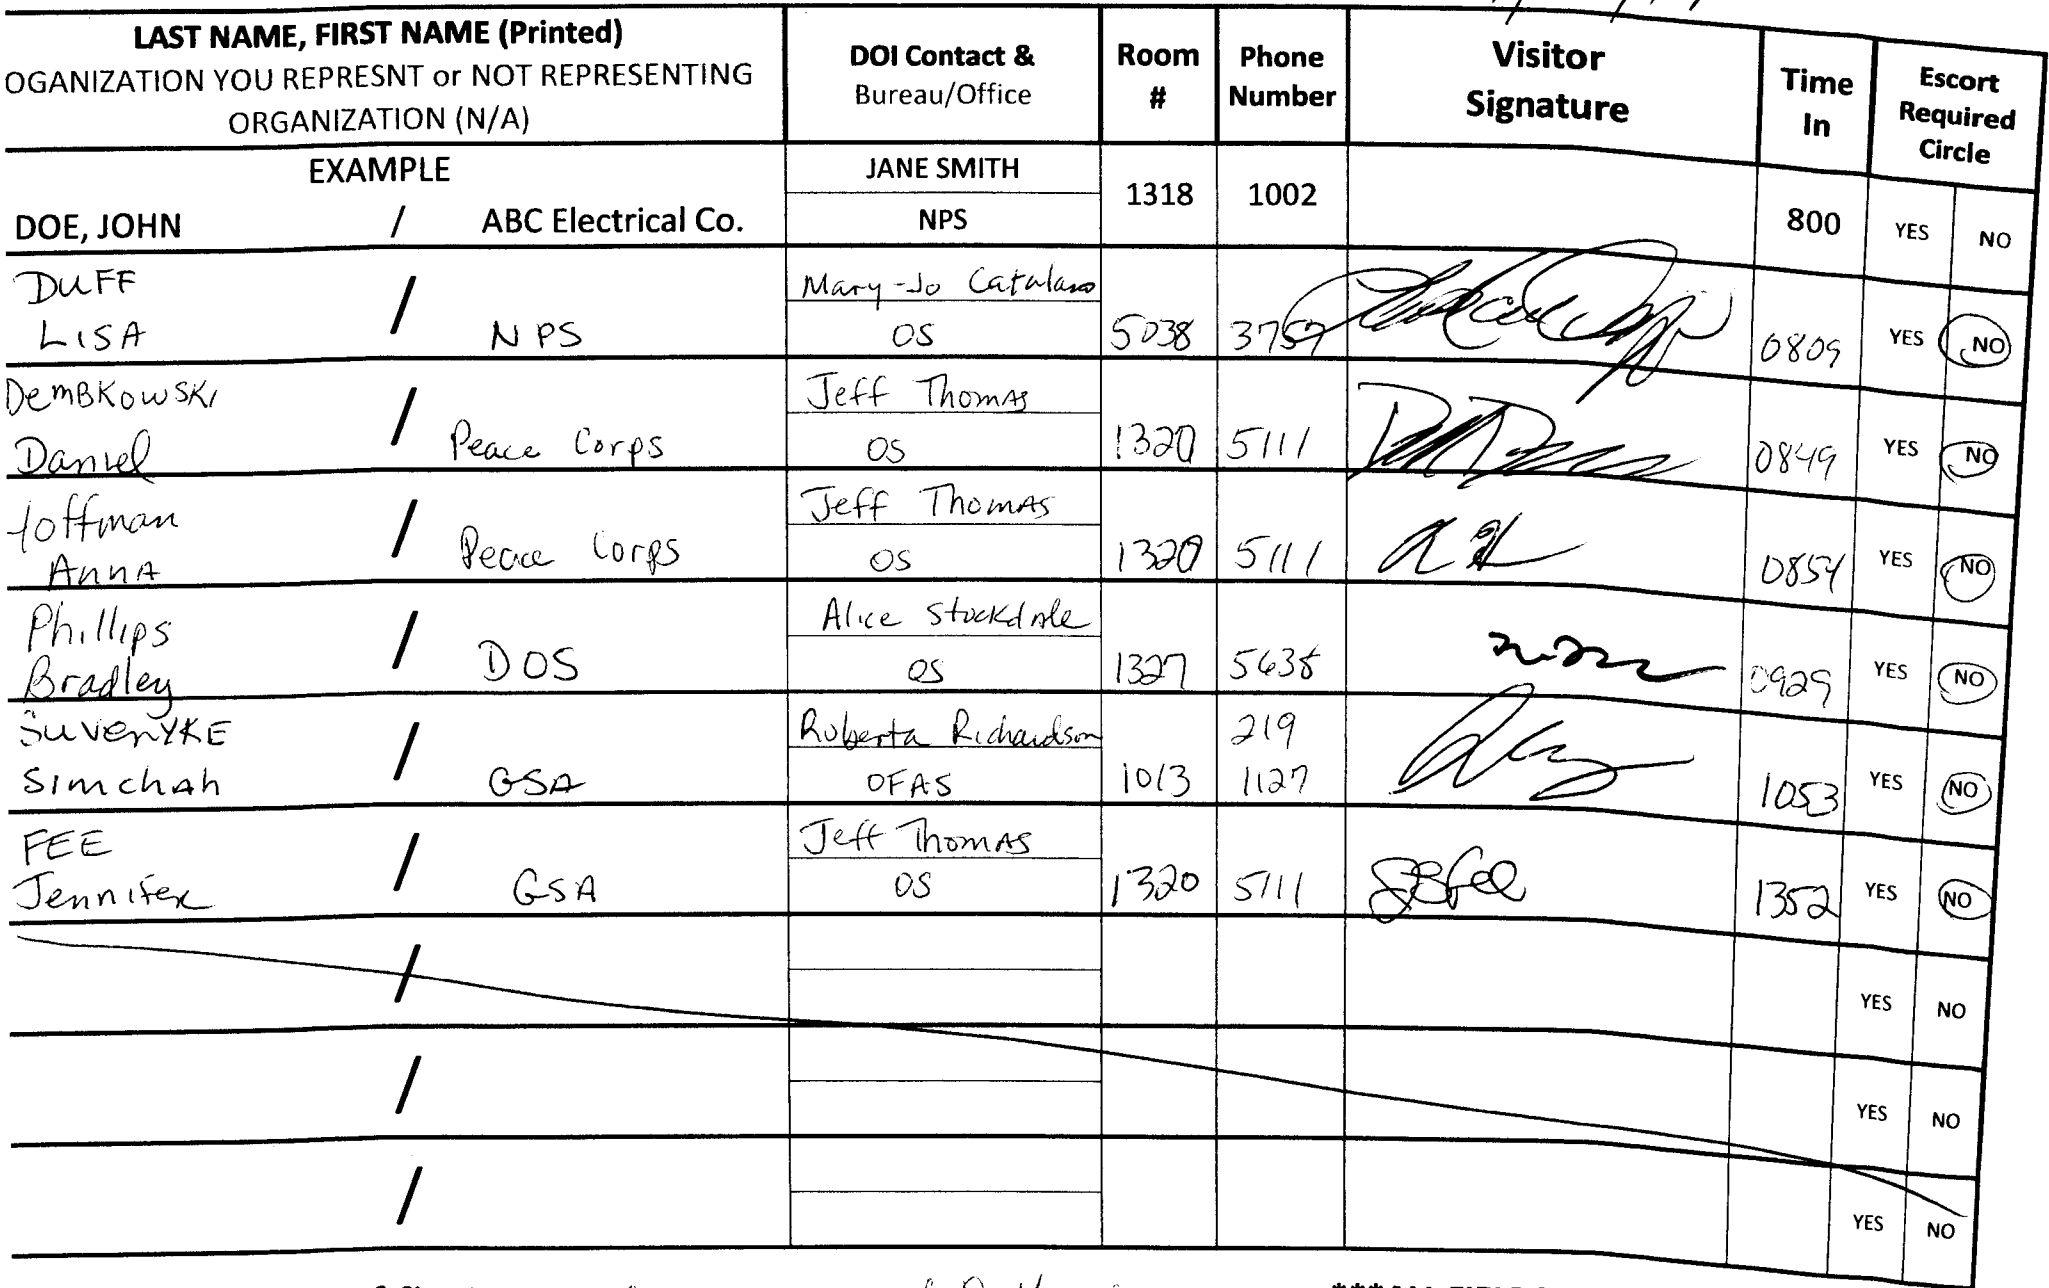 LAST NAME, FIRST NAME (Printed)
OGANIZATION YOU REPRESNT or NOT REPRESENTING
ORGANIZATION (N/A)
DOI Contact &
Bureau/Office
Room
#
Phone
Number
Visitor
Signature
Time
In
Escort
Required
Circle
EXAMPLE
DOE, JOHN / ABC Electrical Co.
JANE SMITH
NPS
1318 1002 800 YES NO
DUFF
LISA / NPS
Mary-Jo Catalano
OS
5038 3757 0809 YES NO
DemBKowSKi
Daniel / Peace Corps
Jeff Thomas
OS
1320 5111 0849 YES NO
Hoffman
Anna / Peace Corps
Jeff Thomas
OS
1320 5111 0854 YES NO
Phillips
Bradley / DOS
Alice Stockdale
OS
1327 5638 0929 YES NO
SuvenYKE
Simchah / GSA
Roberta Richardson
OFAS
1013 219
1127 1053 YES NO
FEE
Jennifer / GSA
Jeff Thomas
OS
1320 5111 1352 YES NO
/ YES NO
/ YES NO
/ YES NO